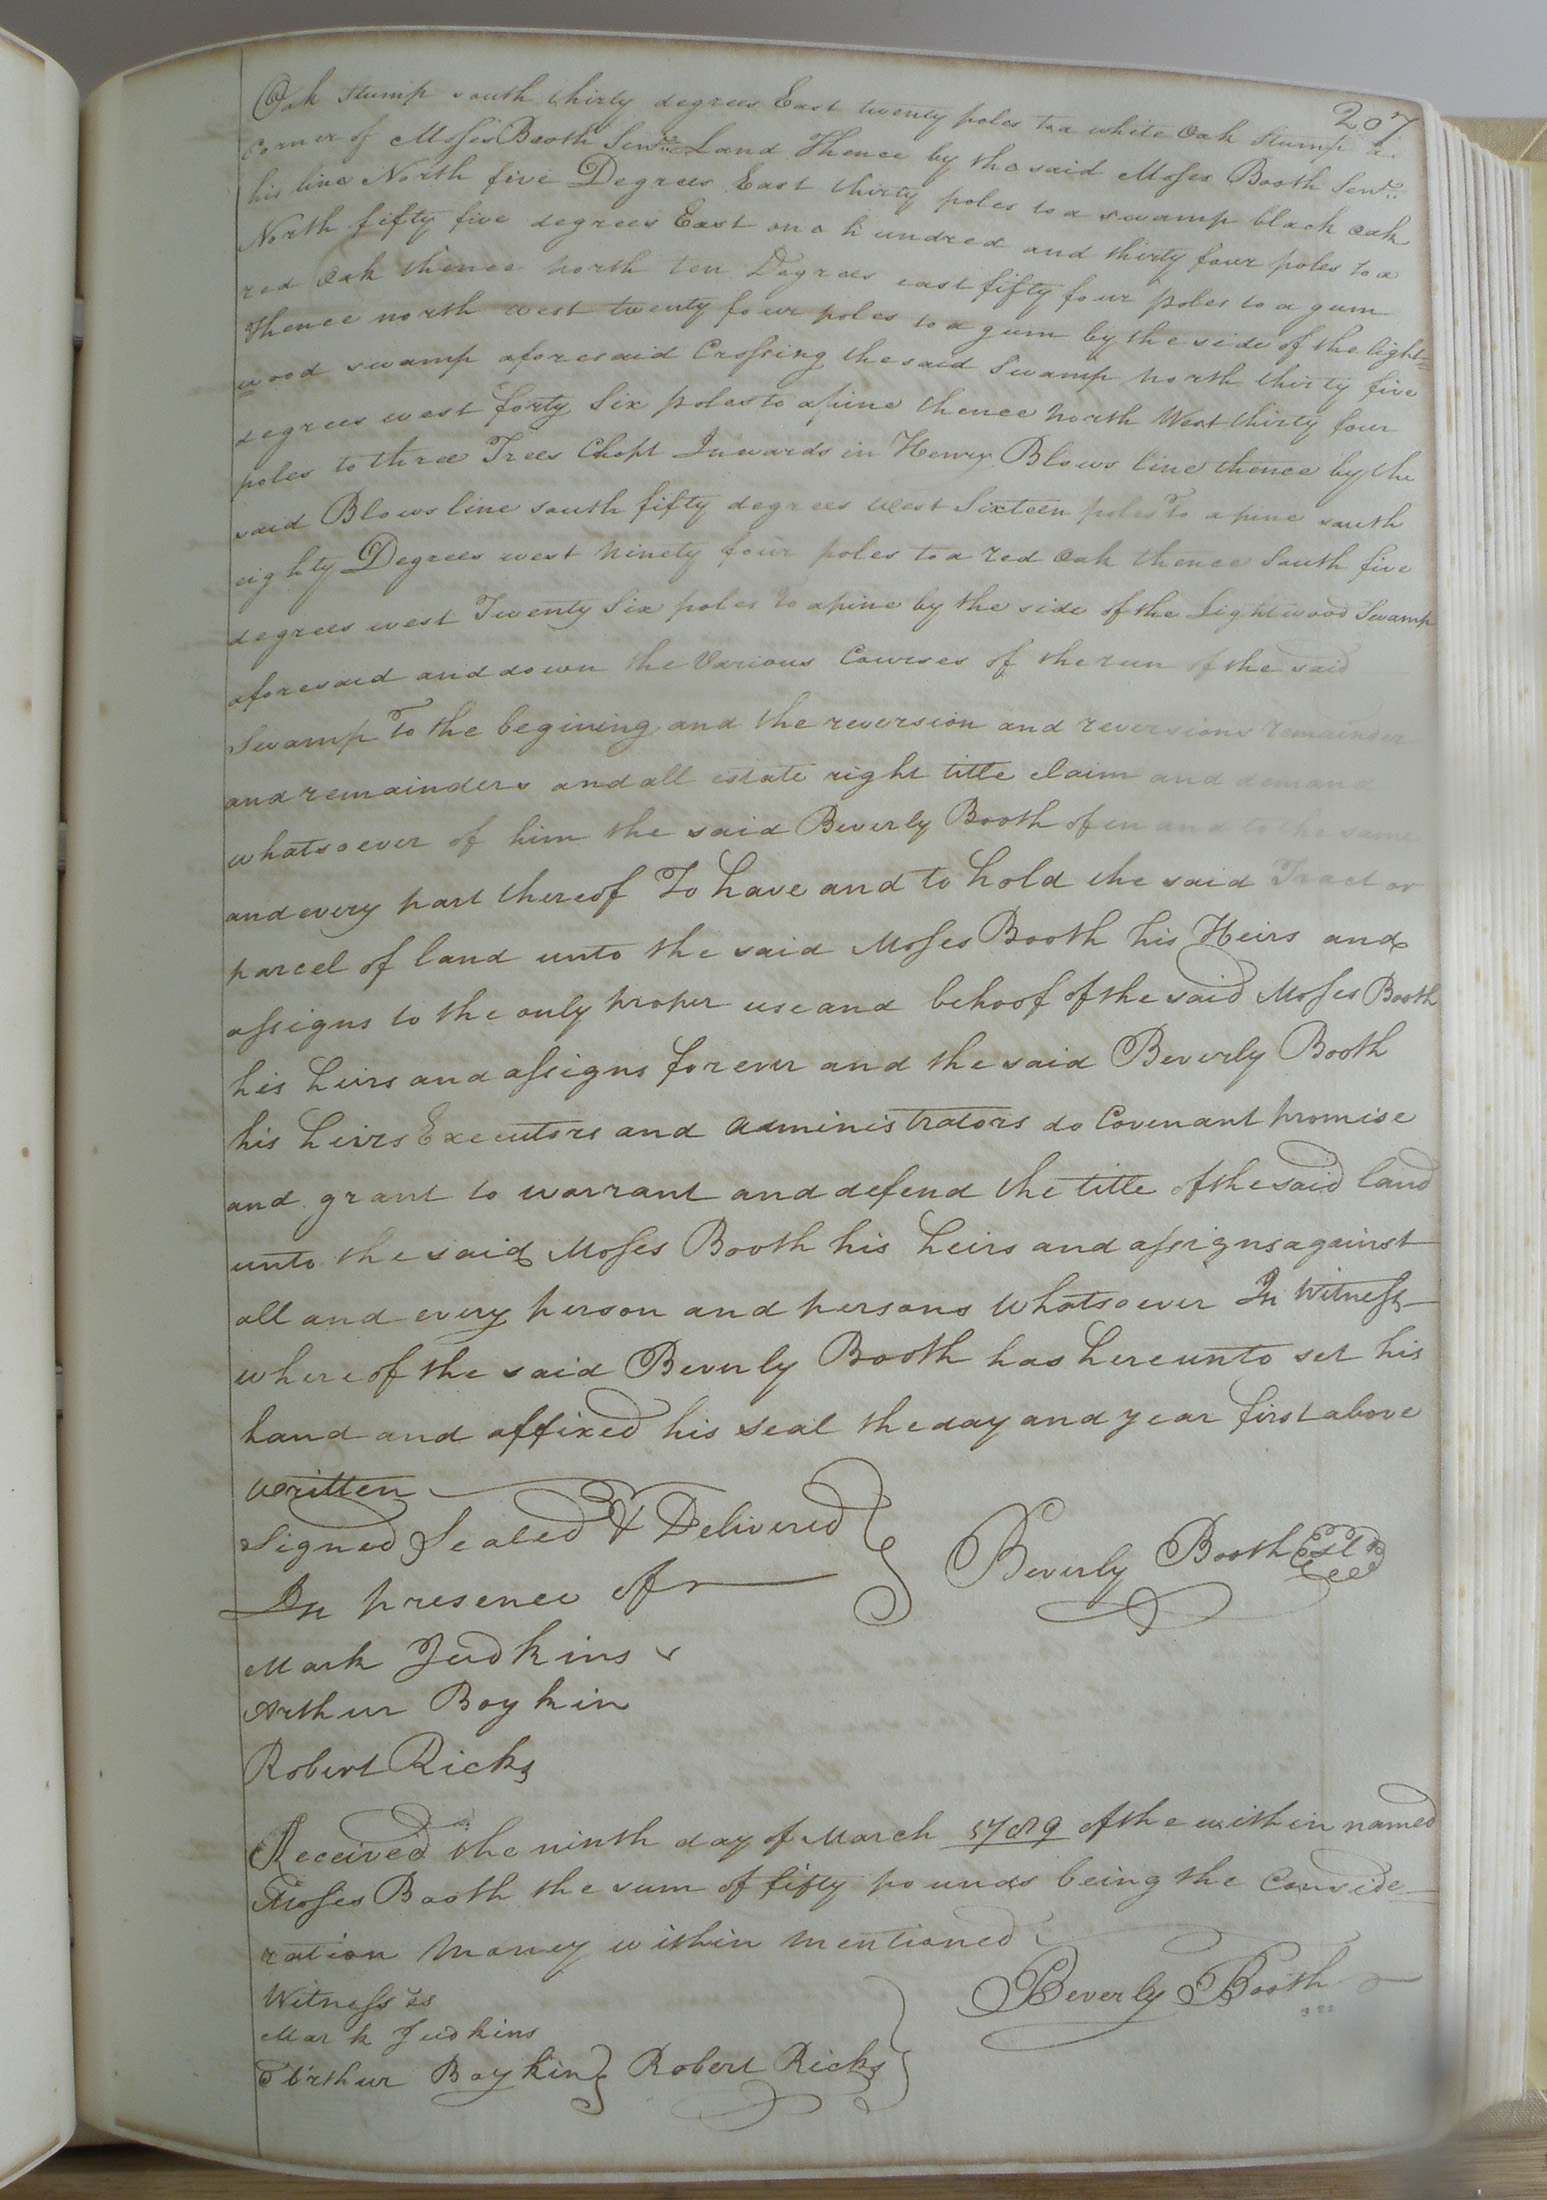 207
Oak Stump south thirty degrees East twenty poles to a white Oak Stump a
corner of Moses Booth Senr. Land Thence by the said Moses Booth Senr.
his line North five Degrees East thirty poles to a swamp black oak
North fifty five degrees East one hundred and thirty four poles to a
red Oak thence north ten Degrees east fifty four poles to a gum
Thence north west twenty four poles to a gum by the side of the light=
=wood swamp aforesaid Crossing the said Swamp north thirty five
degrees west forty Six poles to a pine thence North West thirty four
poles to three Trees Chopt Inwards in Henry Blows line thence by the
said Blows line south fifty degrees west Sixteen poles To a pine south
eighty Degrees west Ninety four poles to a red Oak thence South five
degrees west Twenty Six poles to a pine by the side of the Lightwood Swamp
aforesaid and down the Various Courses of the run of the said
Swamp To the begining and the reversion and reversions remainder
and remainders and all estate right title claim and demand
whatsoever of him the said Beverly Booth of in and to the same
and every part thereof To have and to hold the said Tract or
parcel of land unto the said Moses Booth his Heirs and
assigns to the only proper use and behoof of the said Moses Booth
his heirs and assigns forever and the said Beverly Booth
his heirs Executors and administrators do Covenant promise
and grant to warrant and defend the title of the said land
unto the said Moses Booth his heirs and assigns against
all and every person and persons Whatsoever In Witness
whereof the said Beverly Booth has hereunto set his
hand and affixed his seal the day and year first above
written
Signed Sealed & Delivered
In presence of
Beverly Booth
Mark Judkins
Arthur Boykin
Robert Ricks
Received the ninth day of March 1789 of the within named
Moses Booth the sum of fifty pounds being the Conside-
ration Money within mentioned
Beverly Booth
Witness es
Mark Judkins
Arthur Boykin Robert Ricks